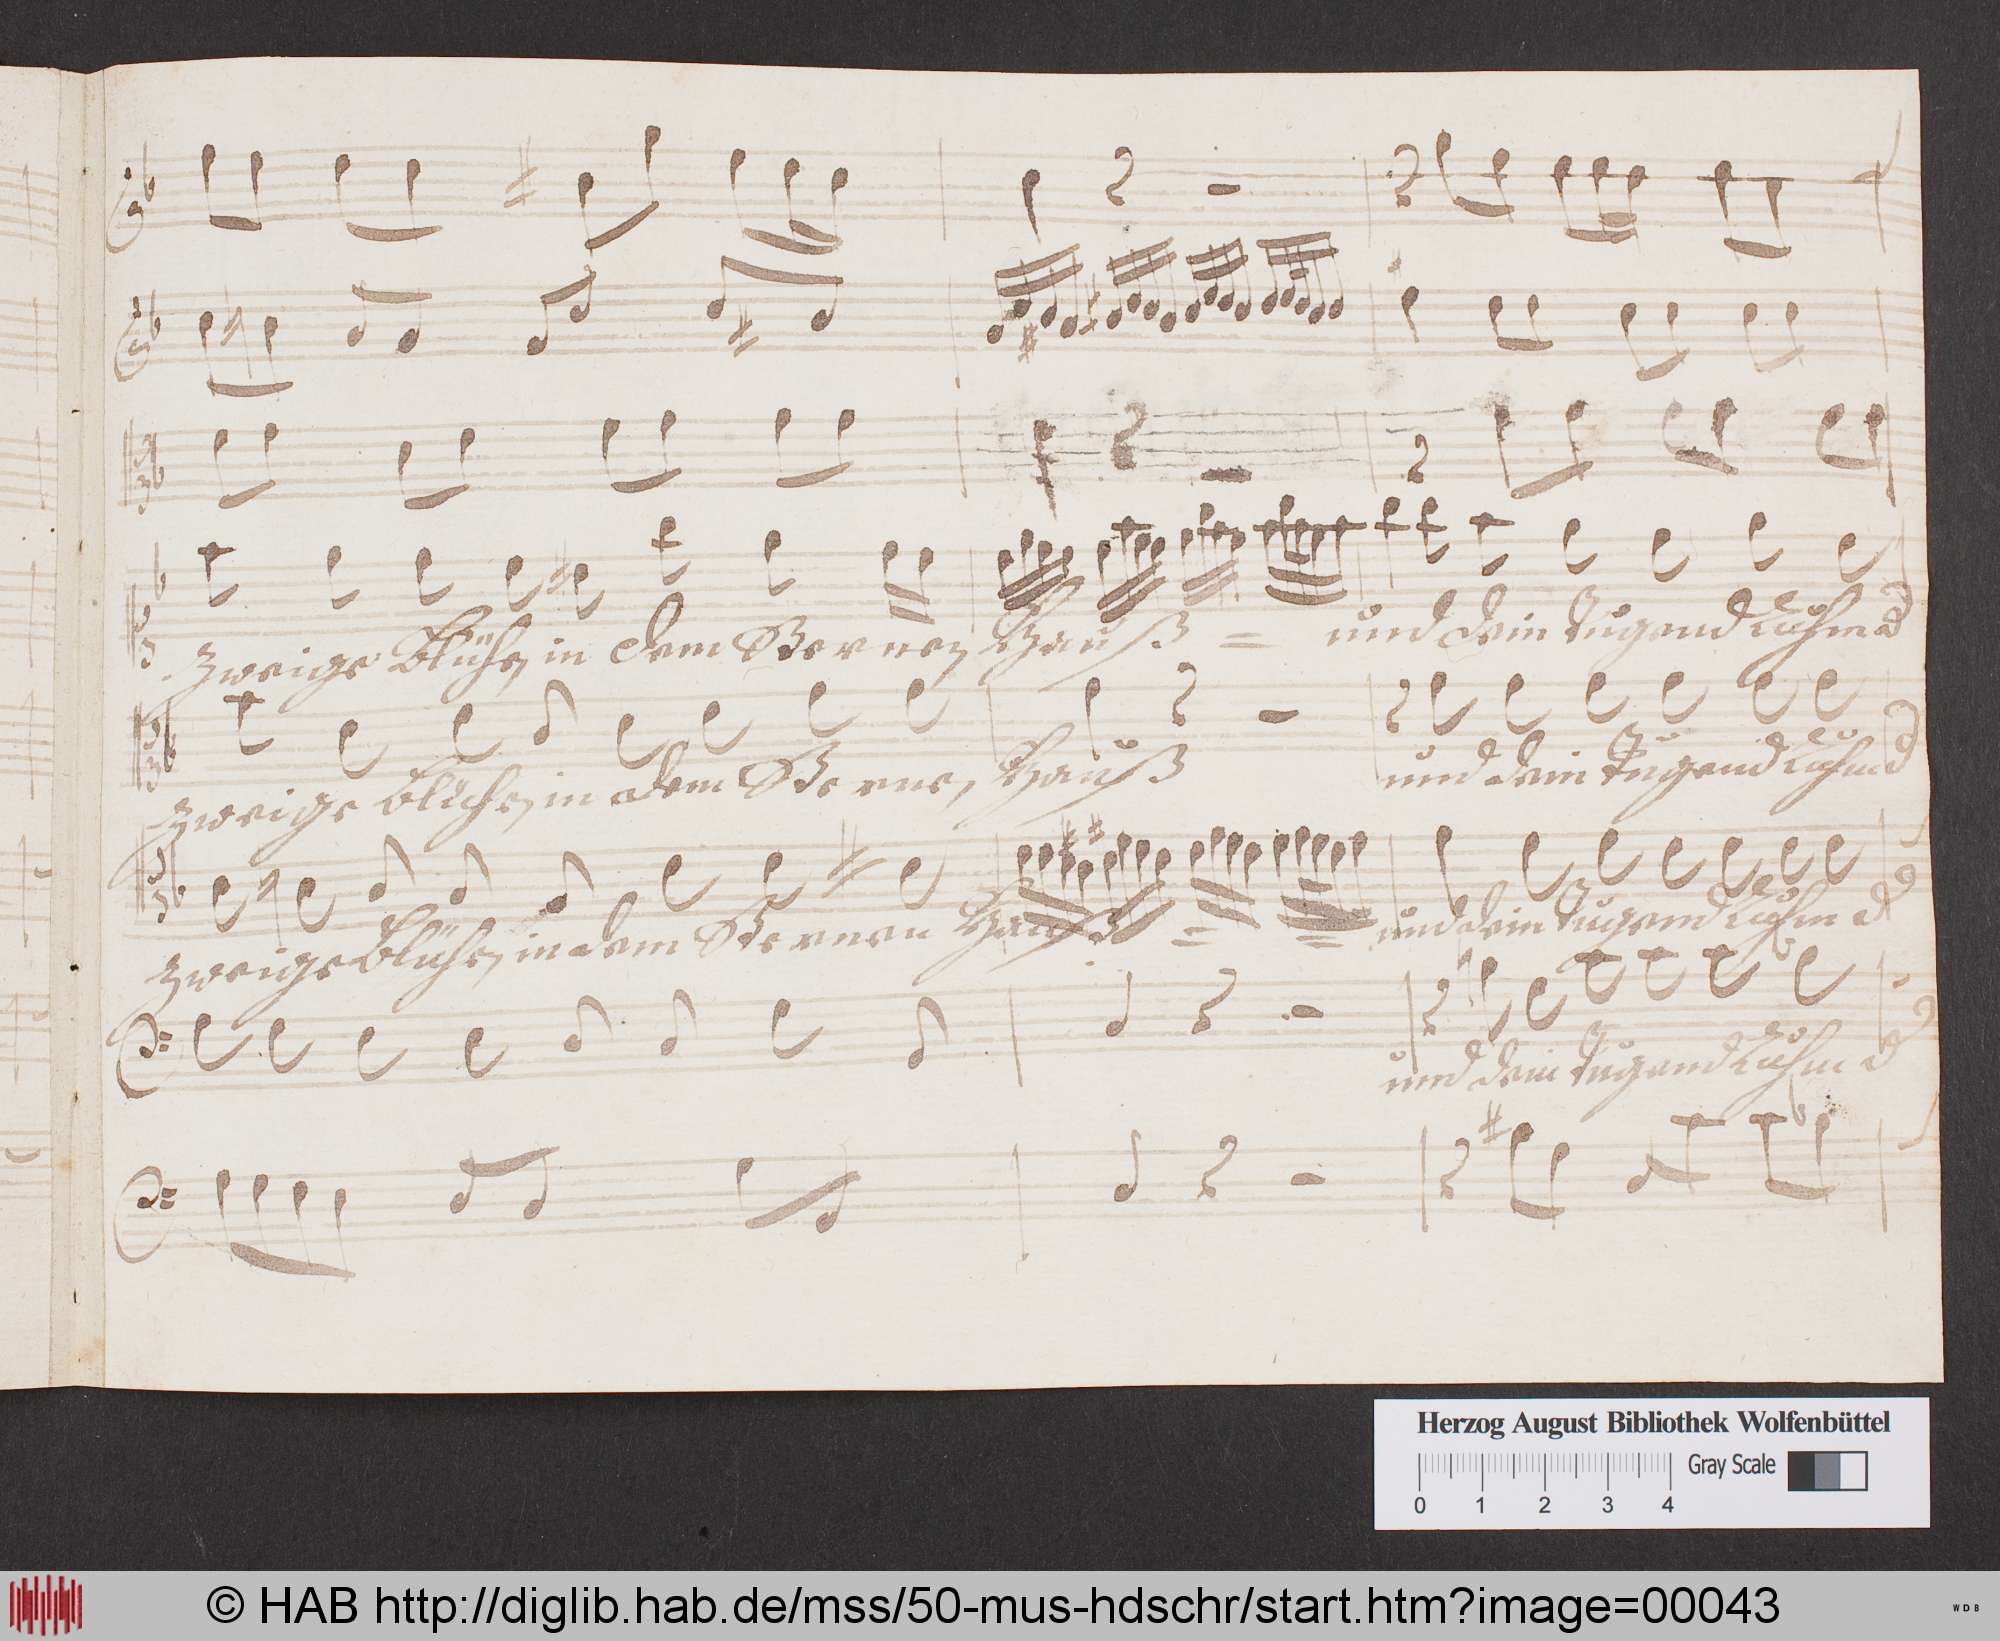 zweige Blühe, in dem Sternen Hauß = und dein Tugend Ruhm d
zweige blühe, in dem Sternen, Hauß und dein Tugend Ruhm d
zweige Blühe, in dem Sternen Hauß = = und dein Tugend Ruhm d
und dein Tugend Ruhm d
Herzog August Bibliothek Wolfenbüttel
Gray Scale
0 1 2 3 4
© HAB http://diglib.hab.de/mss/50-mus-hdschr/start.htm?image=00043
WDB